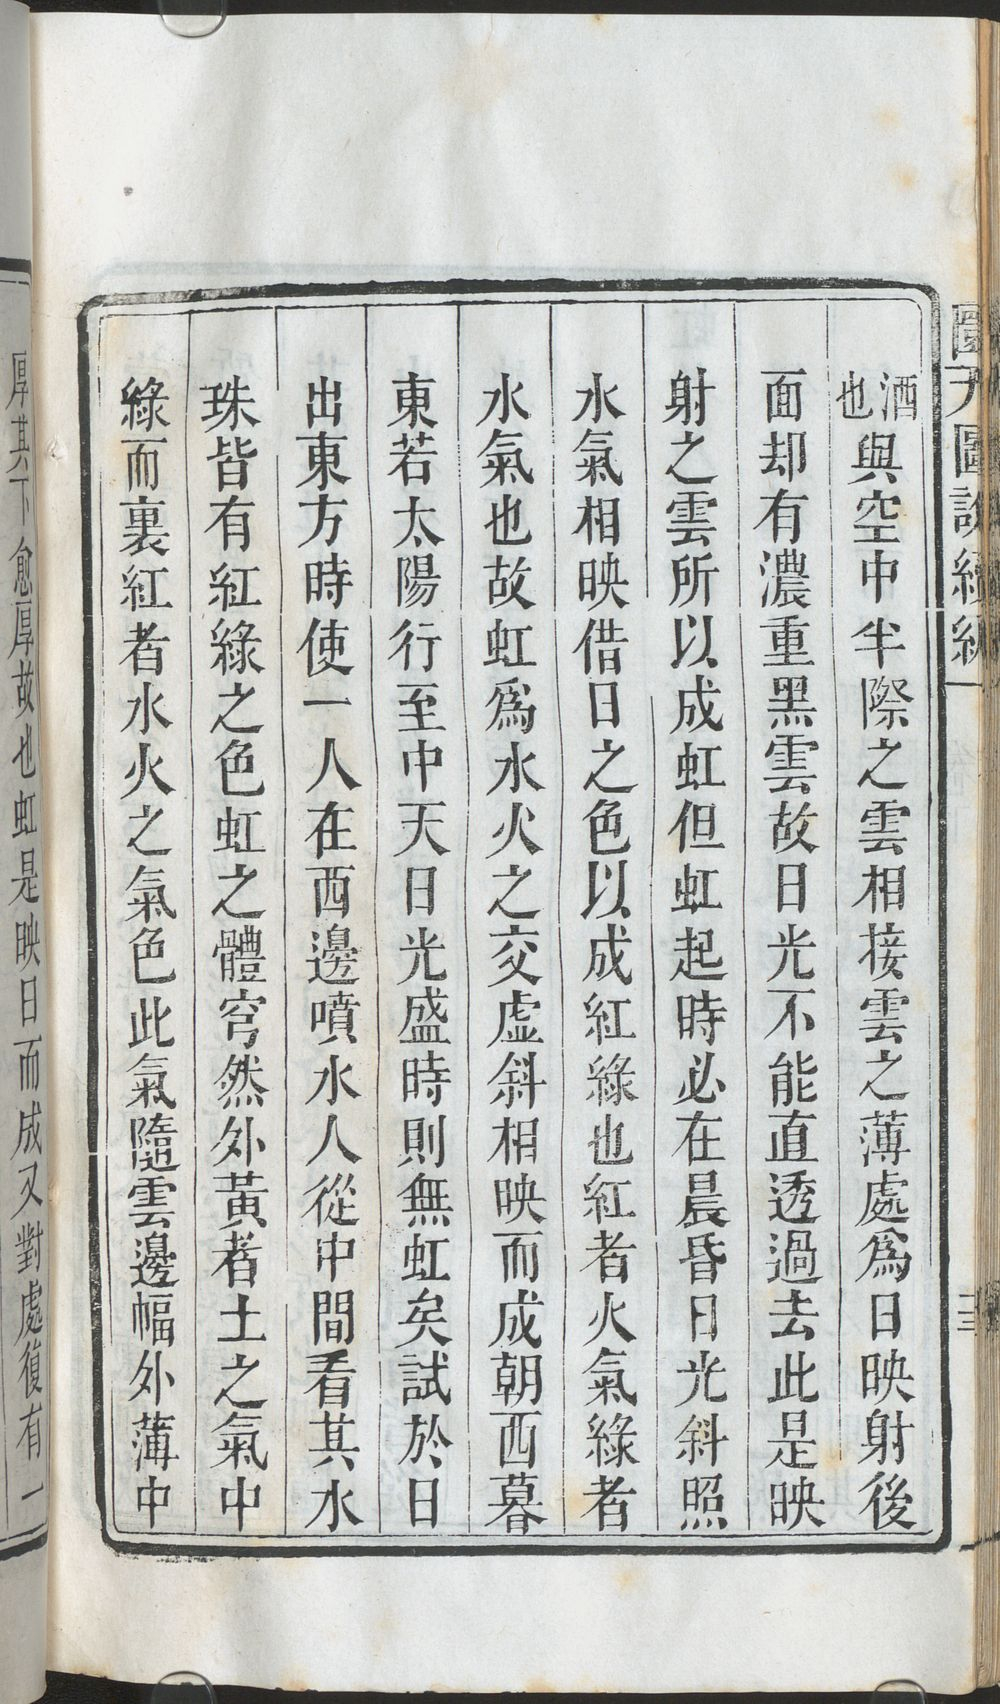 圜天圖說續編一
洒也與空中半際之雲相接雲之薄處爲日映射後
面却有濃重黑雲故日光不能直透過去此是映
射之雲所以成虹但虹起時必在晨昏日光斜照
水氣相映借日之色以成紅綠也紅者火氣綠者
水氣也故虹爲水火之交虛斜相映而成朝西暮
東若太陽行至中天日光盛時則無虹矣試於日
出東方時使一人在西邊噴水人從中間看其水
珠皆有紅綠之色虹之體穹然外黃者土之氣中
綠而裏紅者水火之氣色此氣隨雲邊幅外薄中
厚其下愈厚故也虹是映日而成又對處復有一